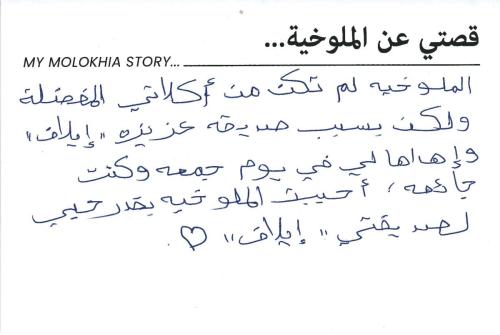 قصتي عن الملوخية...
MY MOLOKHIA STORY...
الملوخيه لم تكن من أكلاتي المفضلة
ولكن بسبب صديقه عزيزه "إيلاف"
وإهداها لي في يوم جمعه وكنت
جائعه، أحببت الملوخيه بقدر حبي
لصديقتي "إيلاف" ♡.